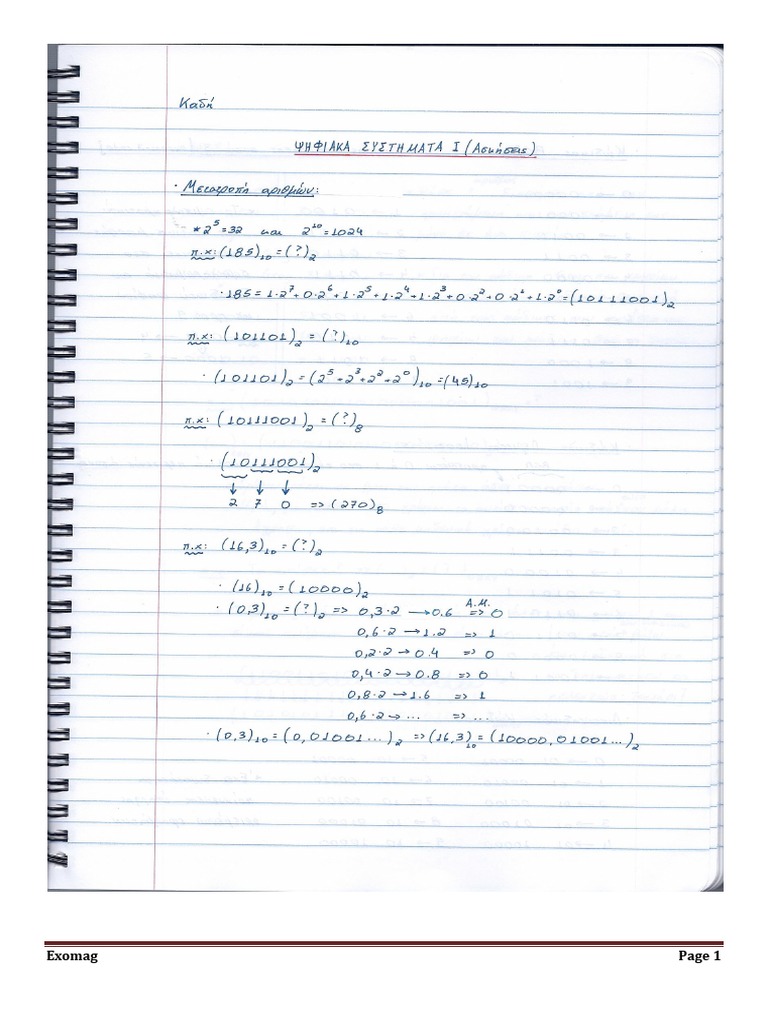 Καδή
ΨΗΦΙΑΚΑ ΣΥΣΤΗΜΑΤΑ Ι (Ασκήσεις)
· Μετατροπή αριθμών:
* 2⁵=32 και 2¹⁰=1024
π.χ: (185)₁₀ = (?)₂
· 185 = 1·2⁷+0·2⁶+1·2⁵+1·2⁴+1·2³+0·2²+0·2¹+1·2⁰ = (10111001)₂
π.χ: (101101)₂ = (?)₁₀
· (101101)₂ = (2⁵+2³+2²+2⁰)₁₀ = (45)₁₀
π.χ: (10111001)₂ = (?)₈
· (10111001)₂
↓ ↓ ↓
2 7 0 => (270)₈
π.χ: (16,3)₁₀ = (?)₂
· (16)₁₀ = (10000)₂
Α.Μ.
· (0,3)₁₀ = (?)₂ => 0,3·2 → 0.6 => 0
0,6·2 → 1.2 => 1
0,2·2 → 0.4 => 0
0,4·2 → 0.8 => 0
0,8·2 → 1.6 => 1
0,6·2 → ... => ...
· (0,3)₁₀ = (0,01001...)₂ => (16,3)₁₀ = (10000,01001...)₂
Exomag Page 1